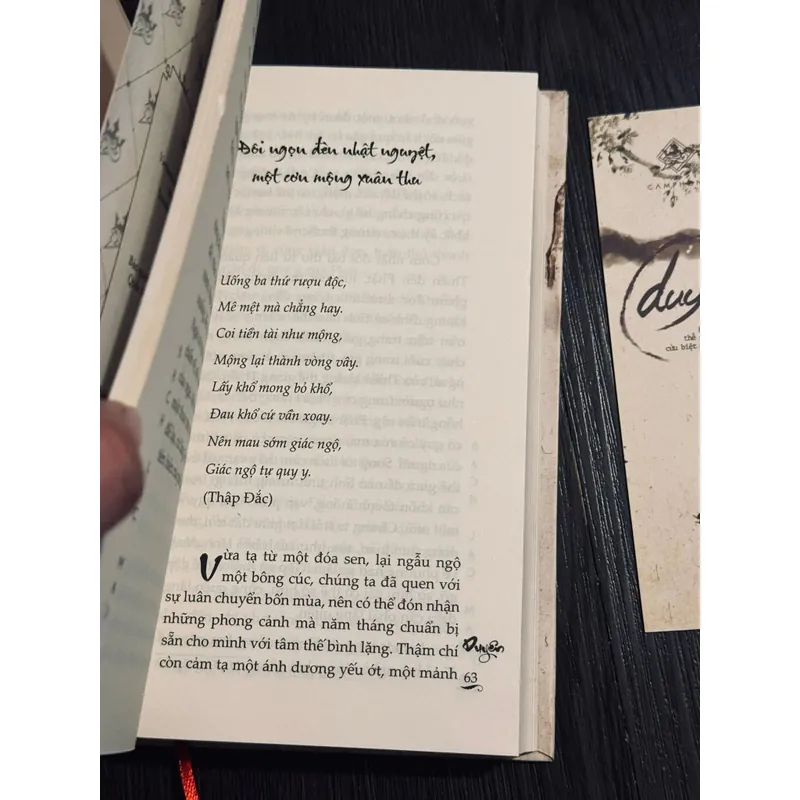 Đôi ngọn đèn nhật nguyệt,
một cơn mộng xuân thu
Uống ba thứ rượu độc,
Mê mệt mà chẳng hay.
Coi tiền tài như mộng,
Mộng lại thành vòng vây.
Lấy khổ mong bỏ khổ,
Đau khổ cứ vần xoay.
Nên mau sớm giác ngộ,
Giác ngộ tự quy y.
(Thập Đắc)
Vừa tạ từ một đóa sen, lại ngẫu ngộ
một bông cúc, chúng ta đã quen với
sự luân chuyển bốn mùa, nên có thể đón nhận
những phong cảnh mà năm tháng chuẩn bị
sẵn cho mình với tâm thế bình lặng. Thậm chí
còn cảm tạ một ánh dương yếu ớt, một mảnh
Duyên
63
duy